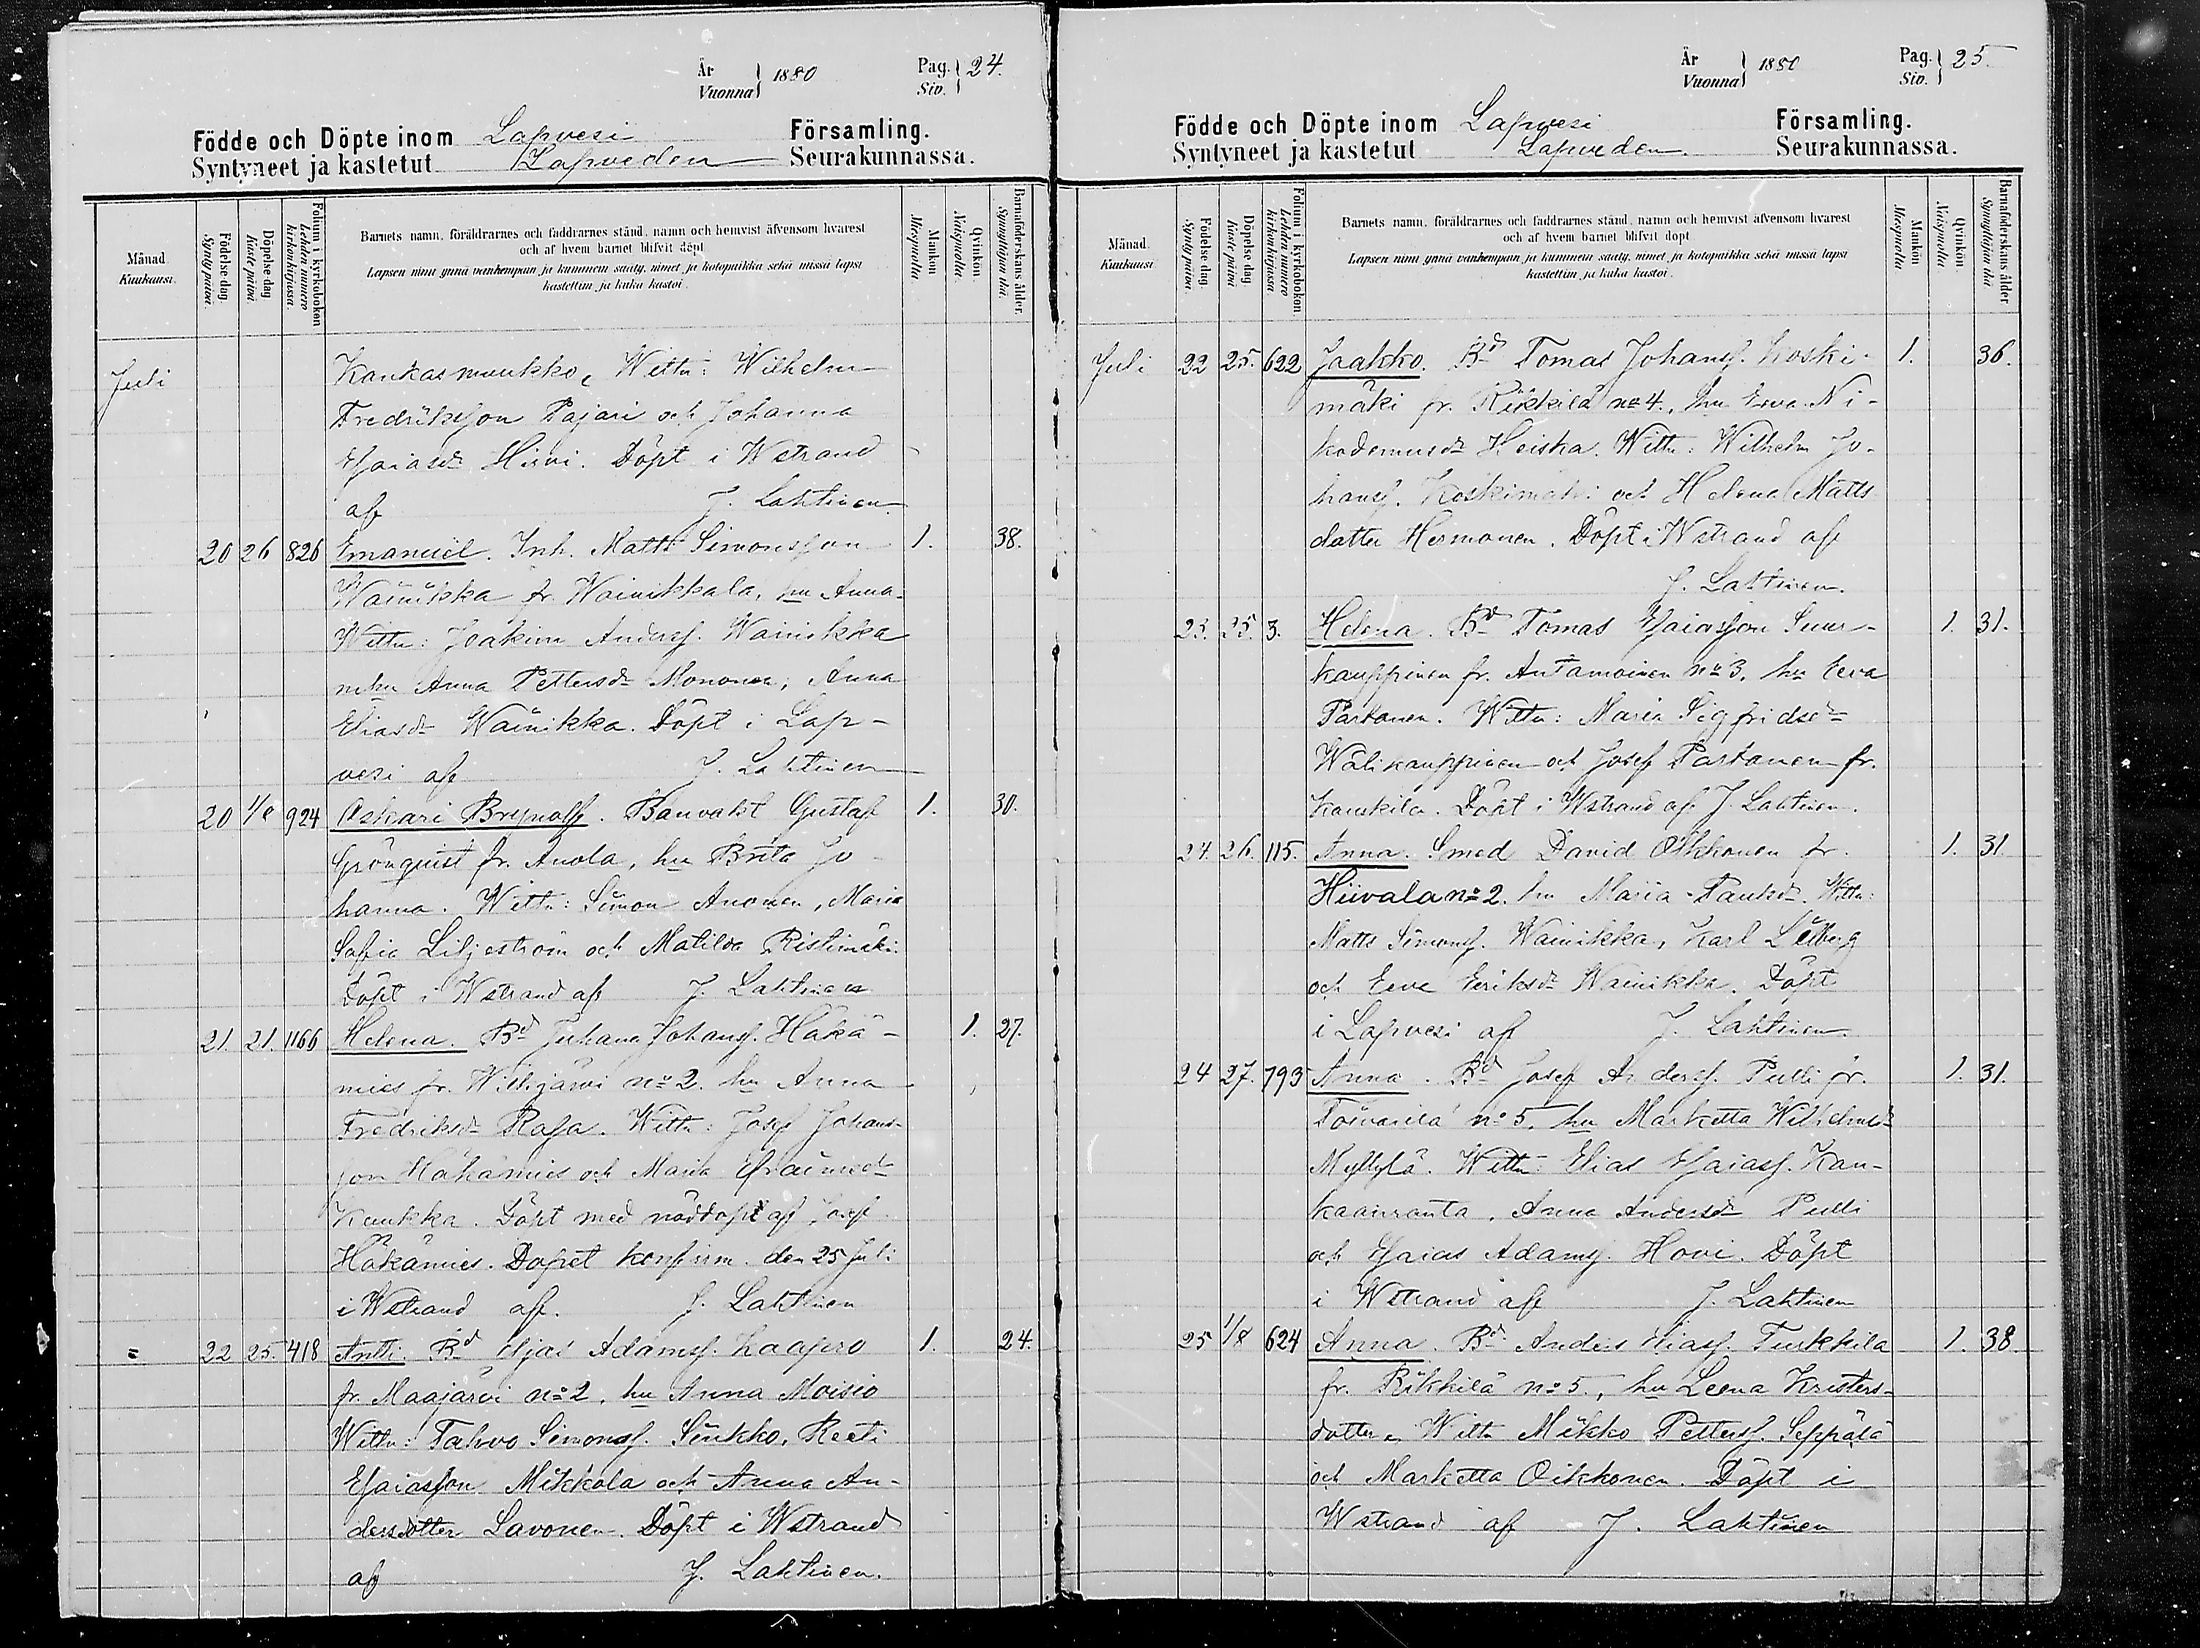 År 1880 Pag. 24.
Vuonna Siv.
Födde och Döpte inom Lapvesi Församling.
Syntyneet ja kastetut Lapveden Seurakunnassa.
Månad. Kuukausi.
Födelse dag. Syntypäivä.
Döpelse dag Kastepäivä
Folium i kyrkobokon Lehden numero kirkonkirjassa.
Barnets namn, föräldrarnes och faddrarnes stånd, namn och hemvist äfvensom hvarest
och af hvem barnet blifvit döpt.
Lapsen nimi ynnä vanhempain ja kummein sääty, nimet, ja kotopaikka sekä missä lapsi
kastettiin ja kuka kastoi.
Mankön Miespuolta.
Qvinkön. Naispuolta.
Barnaföderskans ålder. Synnyttäjän ikä.
Juli Kankasmuukko, Wittn: Wilhelm
Fredriksson Pajari och Johanna
Esaiasdr Hirvi. Döpt i Wstrand
af J. Lahtinen
20 26 826 Emanuel. Inh. Matts Simonsson 1. 38.
Wainikka fr. Wainikkala, hu Anna.
Wittn: Joakim Anderss. Wainikka
mhu Anna Pettersdr Mononen, Anna
Eliasdr Wainikka. Döpt i Lap-
vesi af J. Lahtinen
20 1/8 924 Oskari Brynolf. Banvakt Gustaf 1. 30.
Grönquist fr. Anola, hu Brita Jo-
hanna. Wittn: Simon Anonen, Maria
Sofia Liljeström och Matilda Ristimäki.
Döpt i Wstrand af J. Lahtinen
21. 21. 1166 Helena. Bd Juhana Johanss. Häkä- 1. 27.
mies fr. Wilkjärvi no 2. hu Anna
Fredriksdr Rasa. Wittn: Josef Johans-
son Häkämies och Maria
Kaukka. Döpt med nöddopet af Josef
Häkämies. Dopet konfirm. den 25 Juli
i Wstrand af. J. Lahtinen
= 22 25. 418 Antti. Bd Elias Adamss. Haapero 1. 24.
fr. Maajärvi no 2, hu Anna Moisio
Wittn: Tahvo Simonss. Sinkko, Reeti
Esaiasson Mikkola och Anna An-
dersdotter Lavonen. Döpt i Wstrand
af J. Lahtinen.
År 1880 Pag. 25
Vuonna Siv.
Födde och Döpte inom Lapvesi Församling.
Syntyneet ja kastetut Lapveden. Seurakunnassa.
Månad. Kuukausi.
Födelse dag. Syntypäivä.
Döpelse dag Kastepäivä
Folium i kyrkobokon Lehden numero kirkonkirjassa.
Barnets namn, föräldrarnes och faddrarnes stånd, namn och hemvist äfvensom hvarest
och af hvem barnet blifvit döpt.
Lapsen nimi ynnä vanhempain ja kummein sääty, nimet, ja kotopaikka sekä missä lapsi
kastettiin ja kuka kastoi.
Mankön Miespuolta
Qvinkön Naispuolta
Barnaföderskans ålder Synnyttäjän ikä
Juli 22 25. 622 Jaakko. Bd Tomas Johanss. Koski- 1. 36.
mäki fr. Rikkilä no 4., hu Eeva Ni-
kodemusdr Heiska. Wittn: Wilhelm Jo-
hanss. Koskimäki och Helena Matts
dotter Hermonen. Döpt i Wstrand af
J. Lahtinen.
23. 25. 3. Helena. Bd Tomas Esaiasson Suur- 1. 31.
kauppinen fr. Antamoinen no 3. hu Eeva
Partanen. Wittn: Maria Sigfridsdr
Wälikauppinen och Josef Partanen fr.
Kauskila. Döpt i Wstrand af J. Lahtinen.
24. 26. 115. Anna. Smed David Olkkonen fr. 1. 31.
Hiivala no 2. hu Maria Wittn:
Matts Simonss. Wainikka, Karl
och Eeva Eriksdr Wainikka. Döpt
i Lapvesi af J. Lahtinen.
24 27. 793 Anna. Bd Josef Anderss. Pulli fr. 1. 31.
Toivarila no 5, hu Marketta Wilhelmsdr
Myllylä. Wittn: Elias Esaiass. Kan-
kaanranta, Anna Andersdr Pulli
och Esaias Adamss. Hovi. Döpt
i Wstrand af J. Lahtinen
25 1/8 624 Anna. Bd Anders Eliass. Turkkila 1. 38.
fr. Rikkilä no 5., hu Leena Kristers-
dotter. Wittn Mikko Petterss. Seppälä
och Marketta Oikkonen. Döpt i
Wstrand af J. Lahtinen